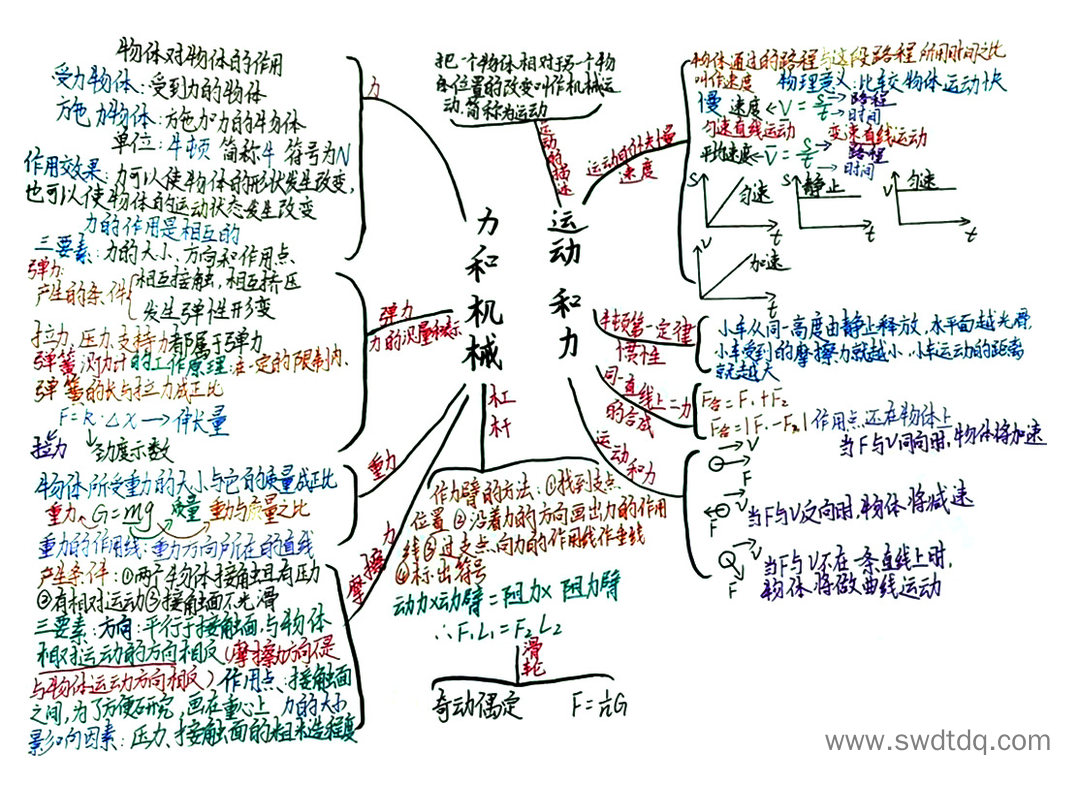 物体对物体的作用
受力物体:受到力的物体
施力物体:施加力的物体
单位:牛顿 简称牛 符号为N
作用效果:力可以使物体的形状发生改变,
也可以使物体的运动状态发生改变
力的作用是相互的
三要素:力的大小、方向和作用点
力
弹力:
产生的条件 相互接触,相互挤压
发生弹性形变
拉力、压力、支持力都属于弹力
弹簧测力计的工作原理:在一定的限制内,
弹簧的长与拉力成正比
F=K·△X→伸长量
拉力 劲度示数
弹力
力的测量和标示
物体所受重力的大小与它的质量成正比
重力 G=mg 质量 重力与质量之比
重力的作用线:重力方向所在的直线
重力
产生条件:①两个物体接触且有压力
②有相对运动③接触面不光滑
三要素:方向:平行于接触面,与物体
相对运动的方向相反(摩擦力方向不是
与物体运动方向相反)作用点:接触面
之间,为了方便研究,画在重心上 力的大小
影响因素:压力、接触面的粗糙程度
摩擦力
力和机械
杠杆
作力臂的方法:①找到支点
位置②沿着力的方向画出力的作用
线③过支点向力的作用线作垂线
④标出符号
动力×动臂=阻力×阻力臂
∴F₁L₁=F₂L₂
滑轮
奇动偶定 F=1/n G
运动和力
把一个物体相对于另一个物
体位置的改变叫作机械运
动,简称为运动
运动的描述
运动的快慢
速度
物体通过的路程与这段路程所用时间之比
叫作速度 物理意义:比较物体运动快
慢 速度←V=s/t→路程
时间
匀速直线运动 变速直线运动
平均速度←V=s/t→路程
时间
S 匀速 t
S 静止 t
V 匀速 t
V 加速 t
牛顿第一定律
惯性
小车从同一高度由静止释放,水平面越光滑,
小车受到的摩擦力就越小,小车运动的距离
就越大
同一直线上二力
的合成
F合=F₁+F₂
F合=|F₁-F₂| 作用点还在物体上
运动和力
V F 当F与V同向时,物体将加速
V F 当F与V反向时,物体将减速
V F 当F与V不在一条直线上时,
物体将做曲线运动
www.swdtdq.com